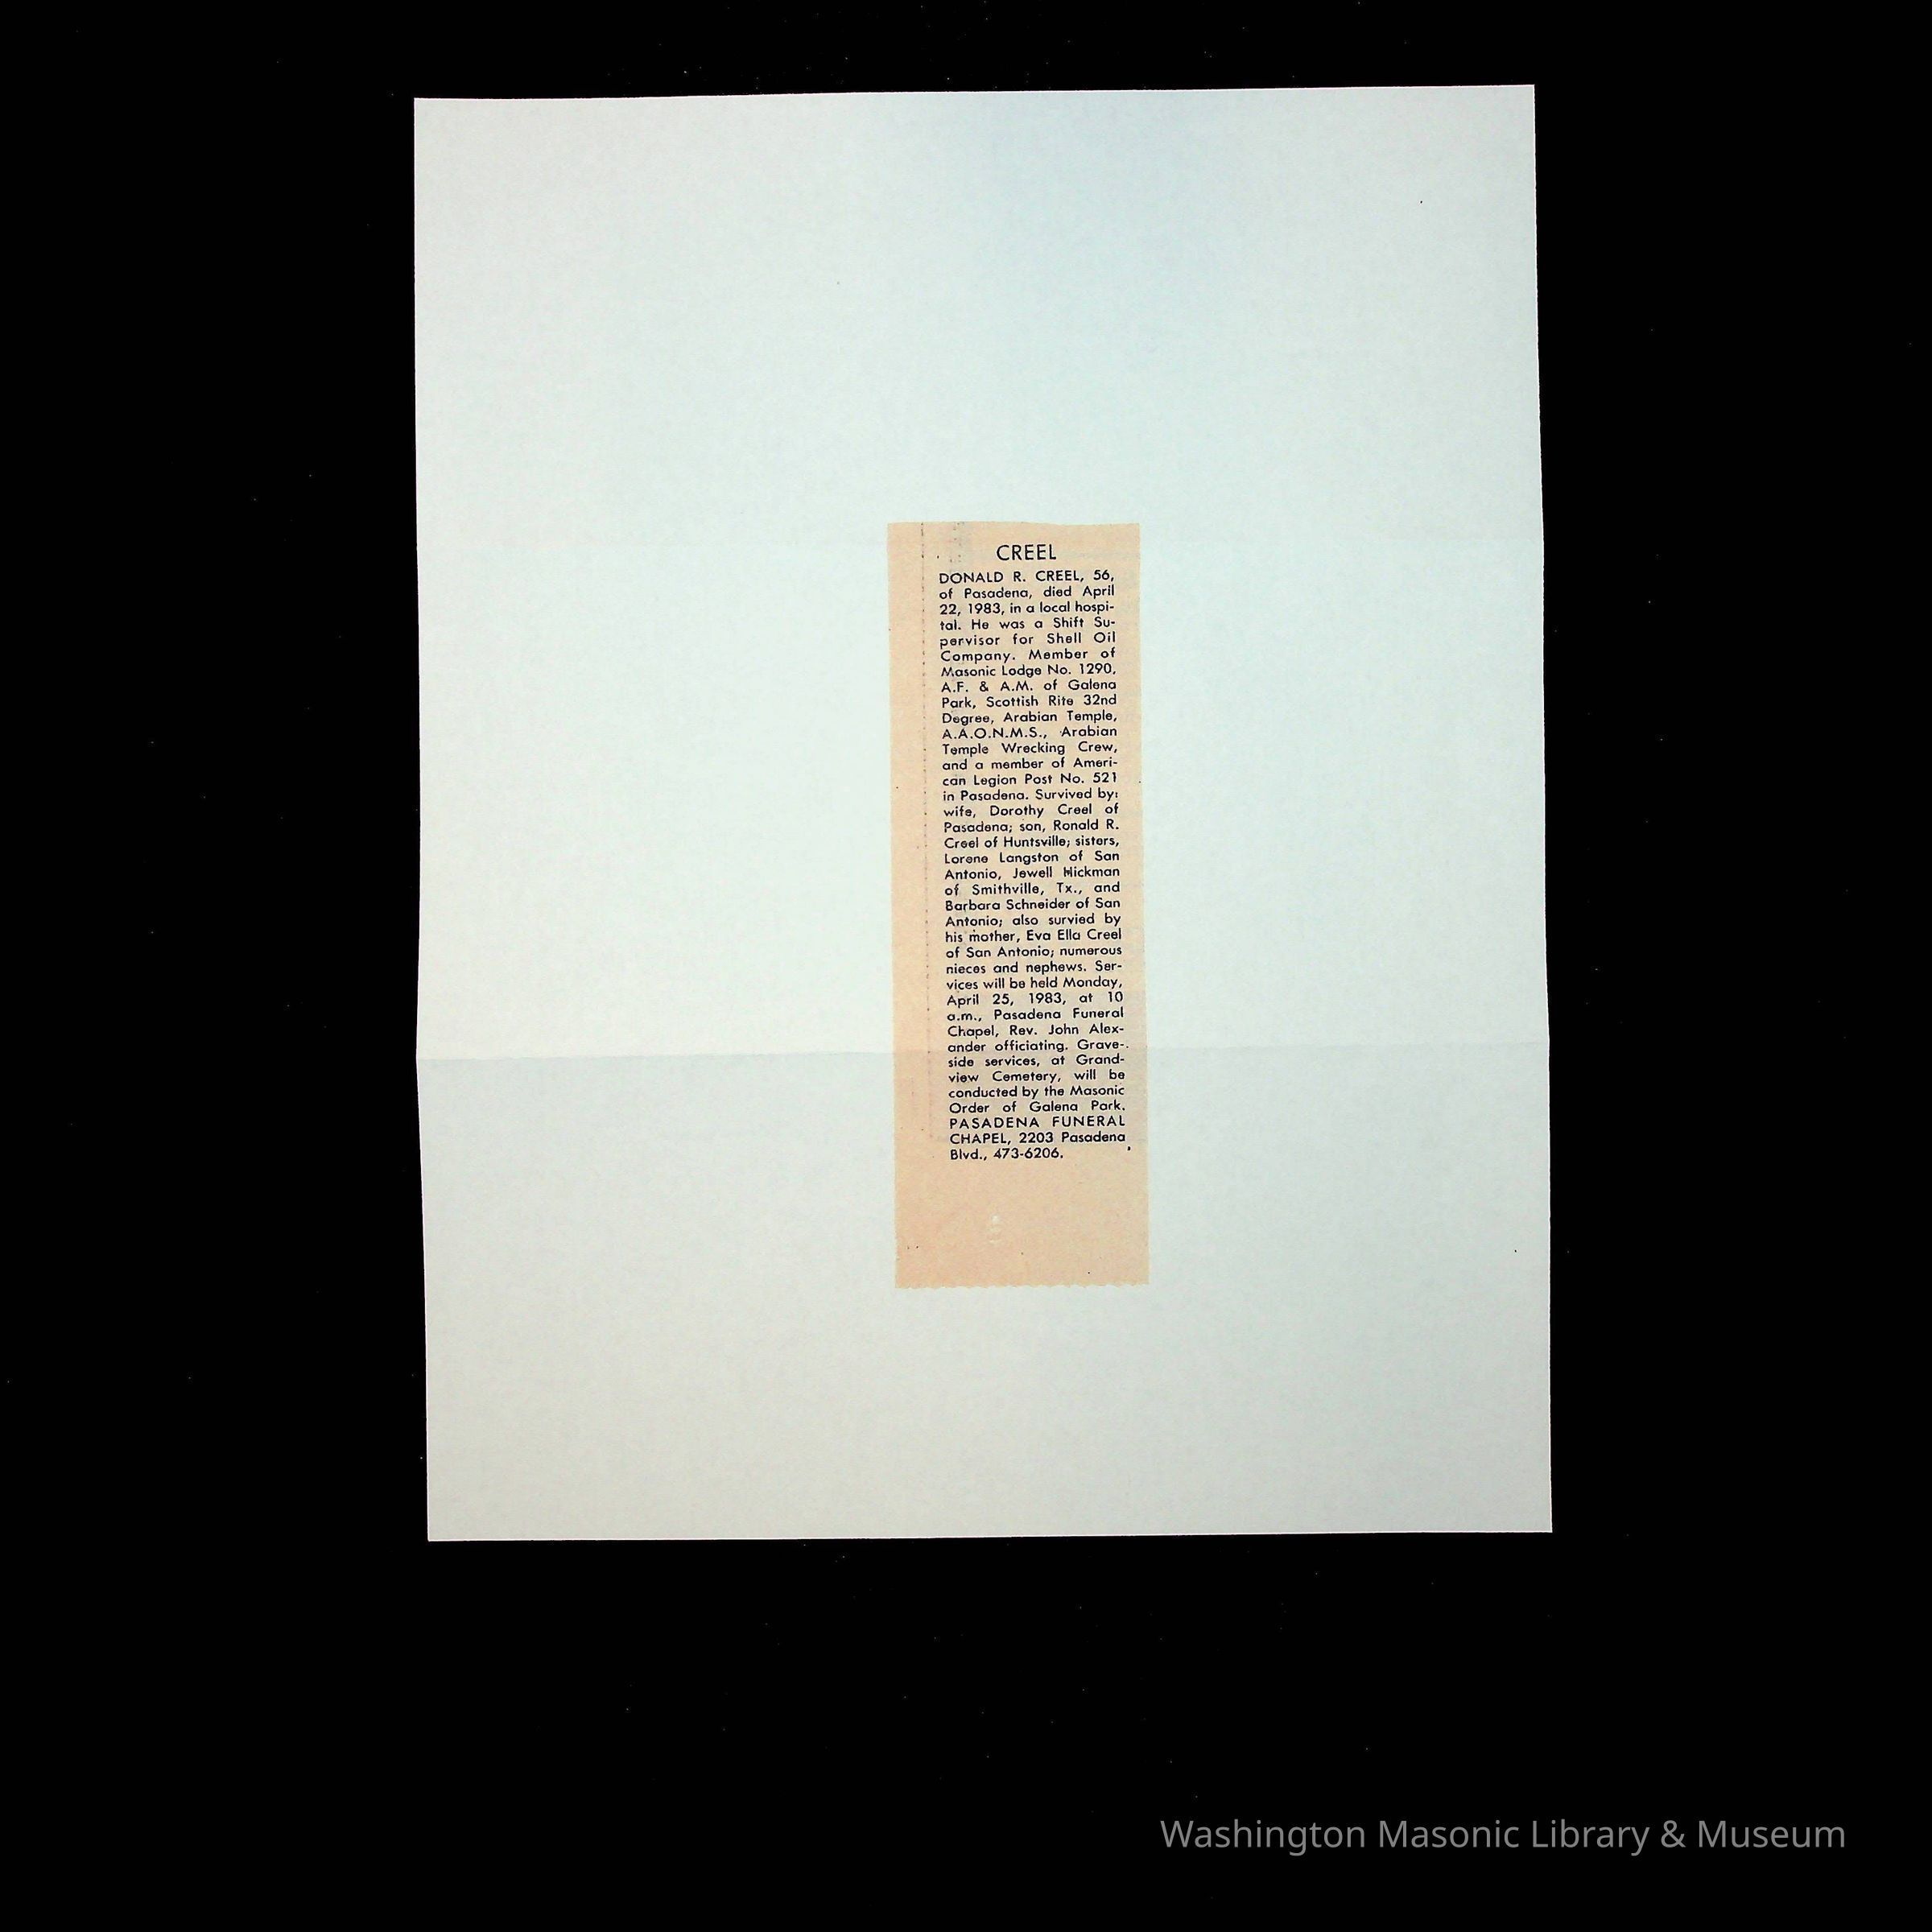 CREEL
DONALD R. CREEL, 56,
of Pasadena, died April
22, 1983, in a local hospi-
tal. He was a Shift Su-
pervisor for Shell Oil
Company. Member of
Masonic Lodge No. 1290,
A.F. & A.M. of Galena
Park, Scottish Rite 32nd
Degree, Arabian Temple,
A.A.O.N.M.S., Arabian
Temple Wrecking Crew,
and a member of Ameri-
can Legion Post No. 521
in Pasadena. Survived by:
wife, Dorothy Creel of
Pasadena; son, Ronald R.
Creel of Huntsville; sisters,
Lorene Langston of San
Antonio, Jewell Hickman
of Smithville, Tx., and
Barbara Schneider of San
Antonio; also survied by
his mother, Eva Ella Creel
of San Antonio; numerous
nieces and nephews. Ser-
vices will be held Monday,
April 25, 1983, at 10
a.m., Pasadena Funeral
Chapel, Rev. John Alex-
ander officiating. Grave-
side services, at Grand-
view Cemetery, will be
conducted by the Masonic
Order of Galena Park.
PASADENA FUNERAL
CHAPEL, 2203 Pasadena
Blvd., 473-6206.
Washington Masonic Library & Museum